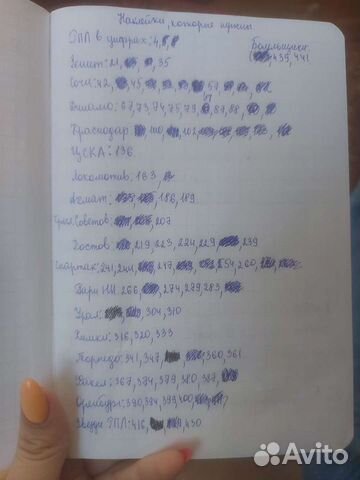 Наклейки, которые нужны.
РПЛ в цифрах: 4, 8
Болельщики: 439, 441
Зенит: 21, 35
Сочи: 42, 45, 59
Динамо: 67, 73, 74, 75, 79, 87, 88
Краснодар 100, 102
ЦСКА: 136
Локомотив: 163
Ахмат: 186, 189
Крыл. Советов: 207
Ростов 219, 223, 224, 229, 239
Спартак: 241, 244, 247, 254, 260
Пари НН 266, 274, 279, 283
Урал: 304, 310
Химки: 316, 320, 333
Торпедо: 341, 347, 360, 361
Факел: 367, 374, 379, 380, 387
Оренбург: 390, 394, 399, 400
Звёзды РПЛ: 416, 430
Avito